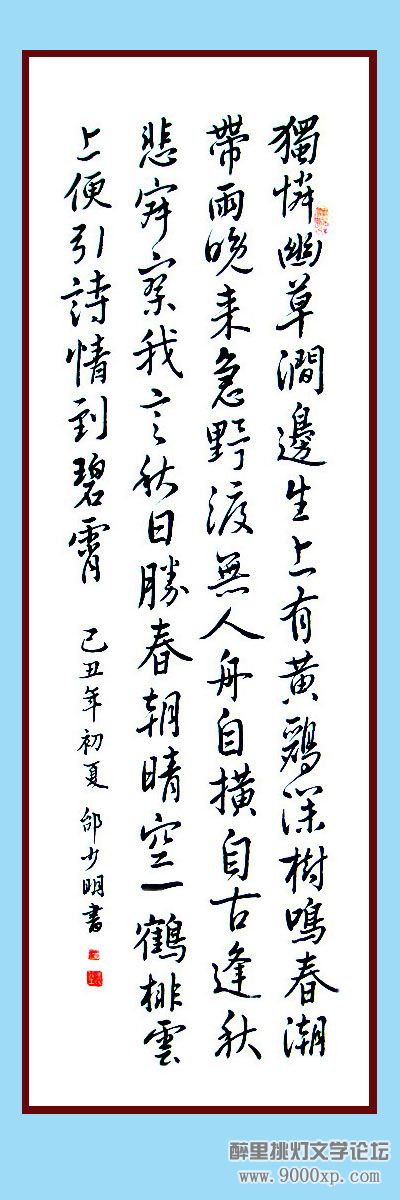 獨憐幽草澗邊生上有黃鸝深樹鳴春潮
帶雨晚來急野渡無人舟自橫自古逢秋
悲寂寥我言秋日勝春朝晴空一鶴排雲
上便引詩情到碧霄
己丑年初夏 邰少明書
醉里挑灯文学论坛
www.9000xp.com